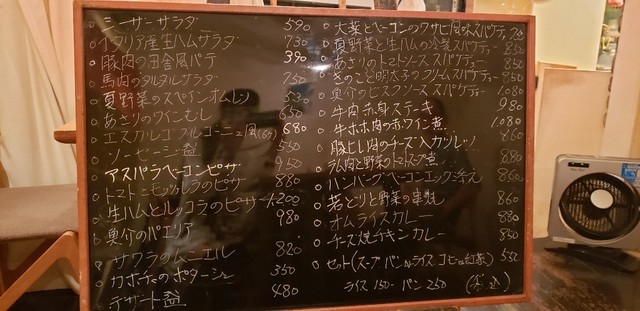 シーザーサラダ 590
イタリア産生ハムサラダ 730
豚肉の田舎風パテ 390
馬肉のタルタルサラダ 750
夏野菜のスペインオムレツ 530
あさりのワインむし 650
エスカルゴブルゴーニュ風(6ケ) 680
ソーセージ盛 550
アスパラベーコンピザ 950
トマトとモッツァレラのピザ 880
生ハムとルッコラのピザ 1200
魚介のパエリア 980
サワラのムニエル 820
カボチャのポタージュ 350
デザート盛 480
大葉とベーコンのワサビ風味スパゲティ
夏野菜と生ハムの冷製スパゲティ 850
あさりのトマトソーススパゲティ 850
きのこと明太子のクリームスパゲティ 850
魚介のビスクソーススパゲティ 1080
牛肉赤身ステーキ 980
牛ホホ肉の赤ワイン煮 1080
豚ヒレ肉のチーズ入カツレツ 860
ラム肉と野菜のトマトスープ煮 880
ハンバーグベーコンエッグ添え 860
若どりと野菜の串焼 860
オムライスカレー 880
チーズ焼チキンカレー 850
セット(スープ パンorライス コーヒーor紅茶) 530
ライス 150ー パン 250 (税込)